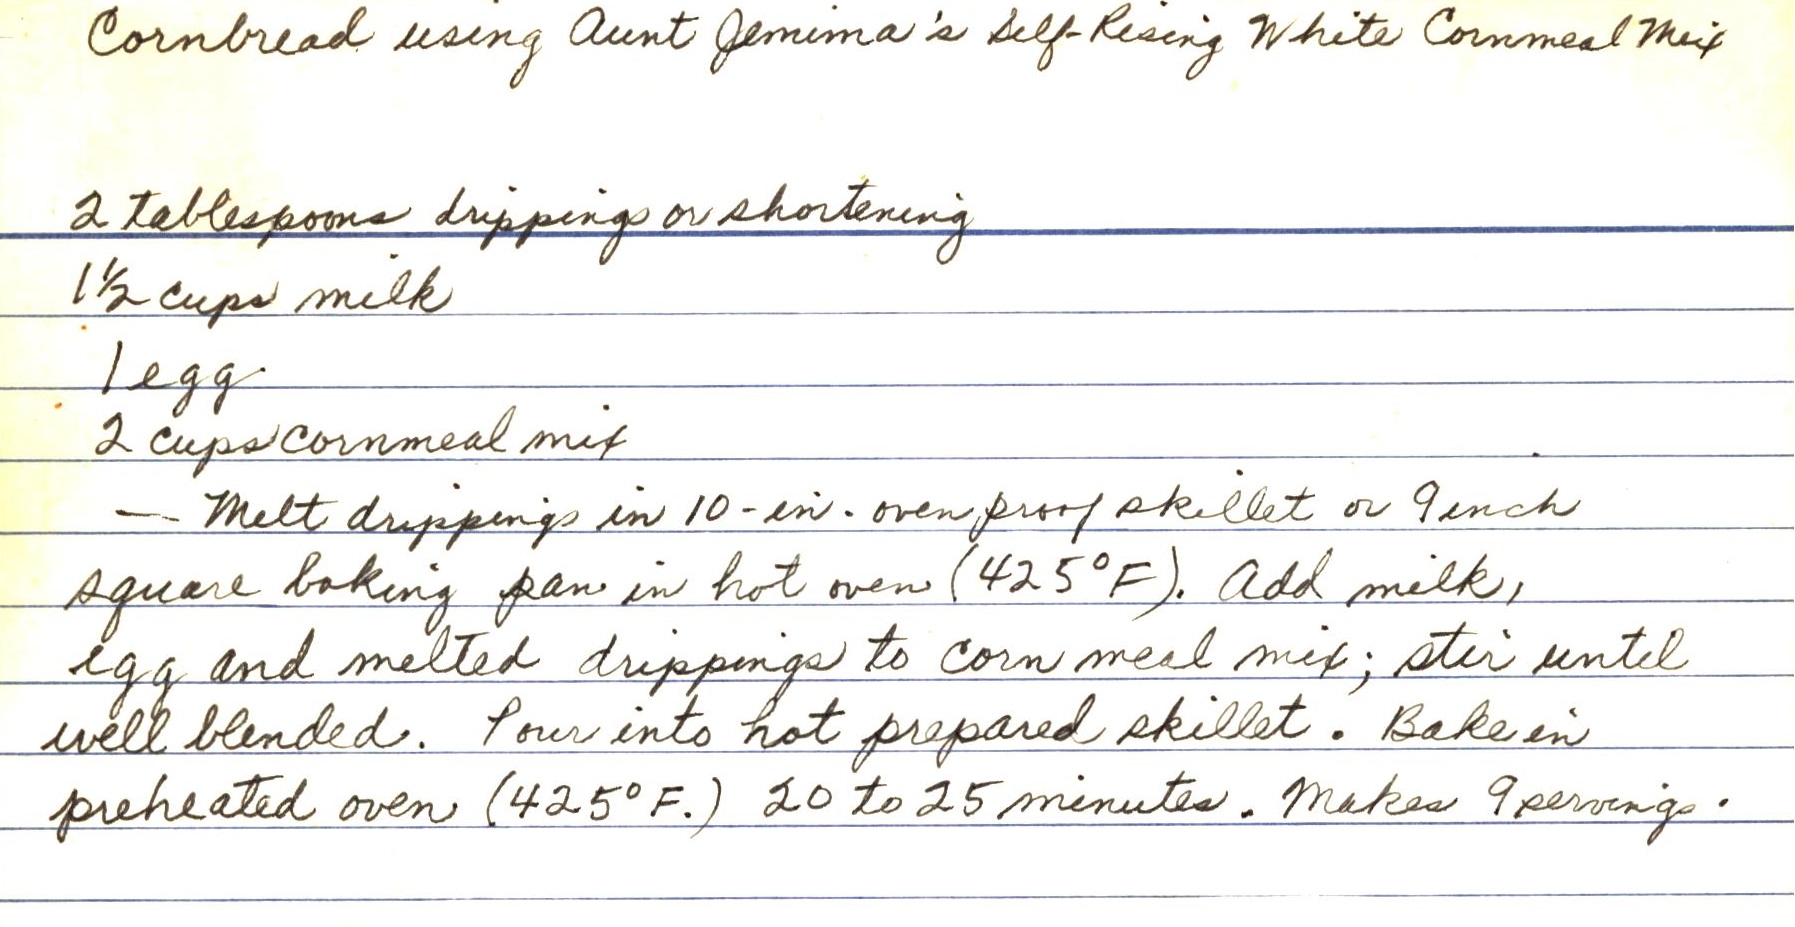 Cornbread using Aunt Jemima's Self-Rising White Cornmeal Mix
2 tablespoons drippings or shortening
1 1/2 cups milk
1 egg
2 cups cornmeal mix
— Melt drippings in 10-in. oven proof skillet or 9 inch
square baking pan in hot oven (425°F). Add milk,
egg and melted drippings to corn meal mix; stir until
well blended. Pour into hot prepared skillet. Bake in
preheated oven (425°F.) 20 to 25 minutes. Makes 9 servings.